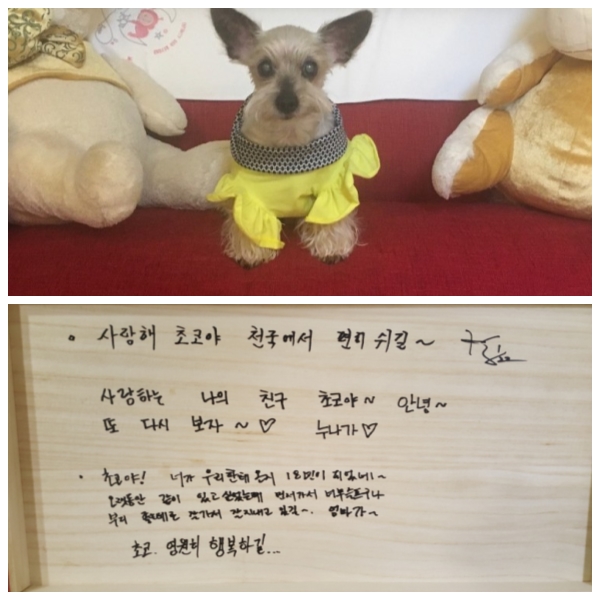 사랑해 초코야 천국에서 편히 쉬길~
사랑하는 나의 친구 초코야~ 안녕~
또 다시 보자 ~♡ 누나가♡
초코야! 너가 우리한테 온지 18년이 지났네~
오랫동안 같이 있고 싶었는데 먼저가서 너무슬프구나
부디 좋은데로 가서 잘지내고 있길~. 엄마가~
초코. 영원히 행복하길...